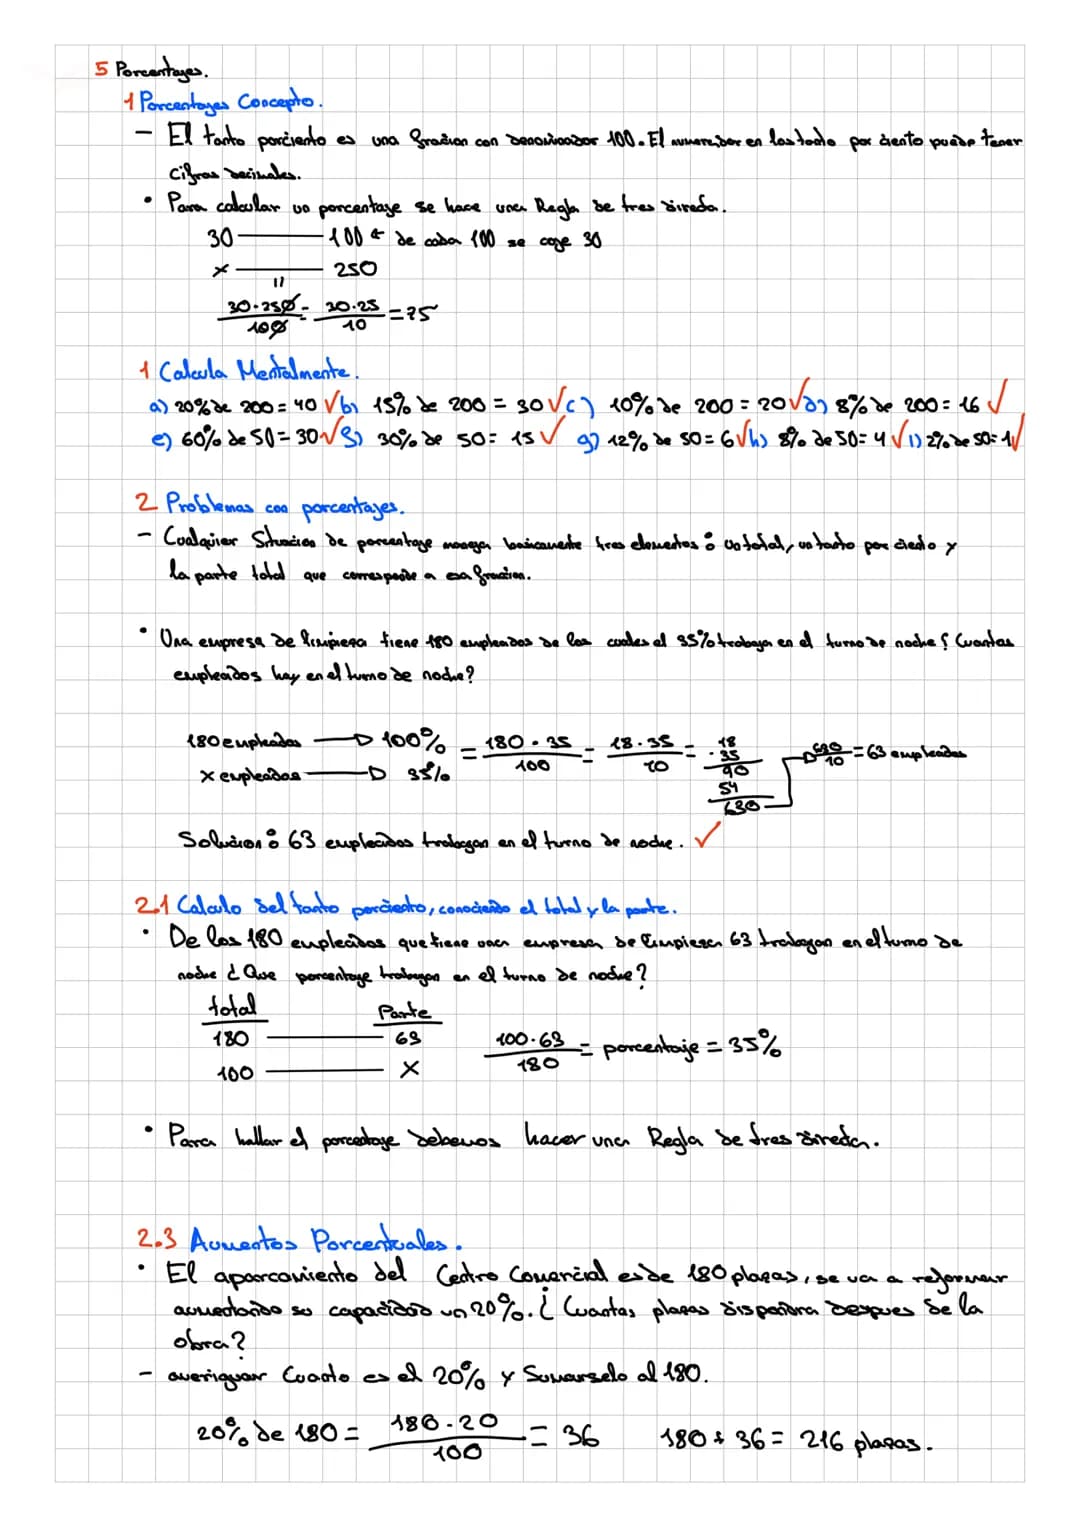 5 Porcentages.
1 Porcentages Concepto.
- El tanto porciento es una fracion con denominador 100. El numerador en los tanto por ciento puede tener
cifras decimales.
• Para calcular un porcentage se hace una Regla de tres directa.
30 — 100 ← de cada 100 se coge 30
x — 250
=
30·250/100 = 30·25/10 = 75
1 Calcula Mentalmente.
a) 20% de 200 = 40 √ b) 15% de 200 = 30 √ c) 10% de 200 = 20 √ d) 8% de 200 = 16 √
e) 60% de 50 = 30 √ f) 30% de 50 = 15 √ g) 12% de 50 = 6 √ h) 8% de 50 = 4 √ i) 2% de 50 = 1 √
2 Problemas con porcentajes.
- Cualquier Situacion de porcentage maneja basicamente tres elementos: un total, un tanto por ciento y
la parte total que corresponde a esa fraccion.
• Una empresa de limpieza tiene 180 empleados de los cuales el 35% trabaja en el turno de noche ¿ Cuantas
empleados hay en el turno de noche?
180 empleados → 100% = 180·35/100 = 18·35/10 = 18 ·35 90 54 630 → 630/10 = 63 empleados
x empleados → 35%
Solucion: 63 empleados trabagan en el turno de noche. √
2.1 Calculo del tanto porciento, conociendo el total y la parte.
• De los 180 empleados que tiene una empresa de limpieza 63 trabagan en el turno de
noche ¿ Que porcentage trabagan en el turno de noche?
total Parte
180 — 63
100 — x
100·63/180 = porcentaje = 35%
• Para hallar el porcentage debemos hacer una Regla de tres directa.
2.3 Aumentos Porcentuales.
• El aparcamiento del Centro Comercial es de 180 plazas, se va a reformar
aumentando su capacidad un 20%. ¿ Cuantas plazas dispondra despues de la
obra?
- averiguar Cuanto es el 20% y Sumarselo al 180.
20% de 180 = 180·20/100 = 36 180 + 36 = 216 plazas.